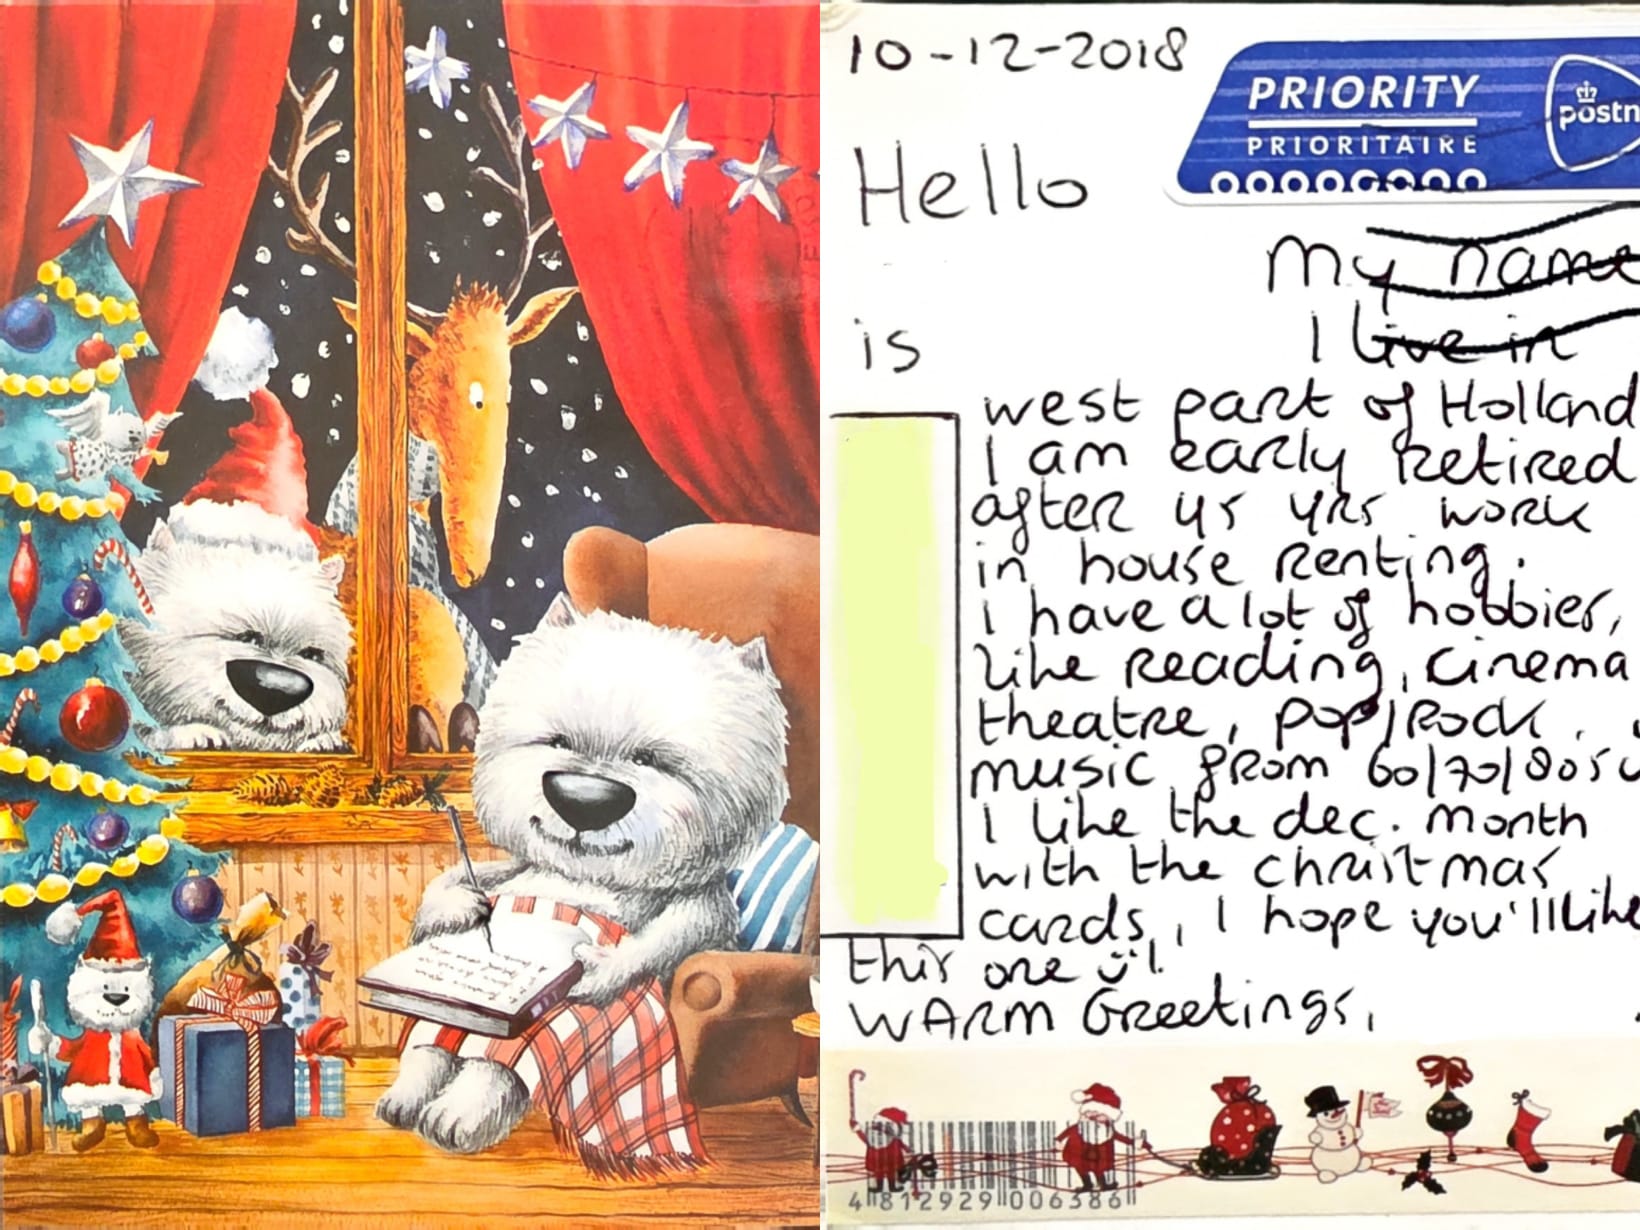 10-12-2018
PRIORITY
PRIORITAIRE
postn
Hello
My name
is
I live in
west part of Holland
I am early retired
after 45 yrs work
in house renting.
I have a lot of hobbies,
like reading, cinema
theatre, pop/Rock.
music from 60/70/80s
I like the dec. month
with the christmas
cards, I hope you'll like
this one!
WARM Greetings,
4 812929 006386